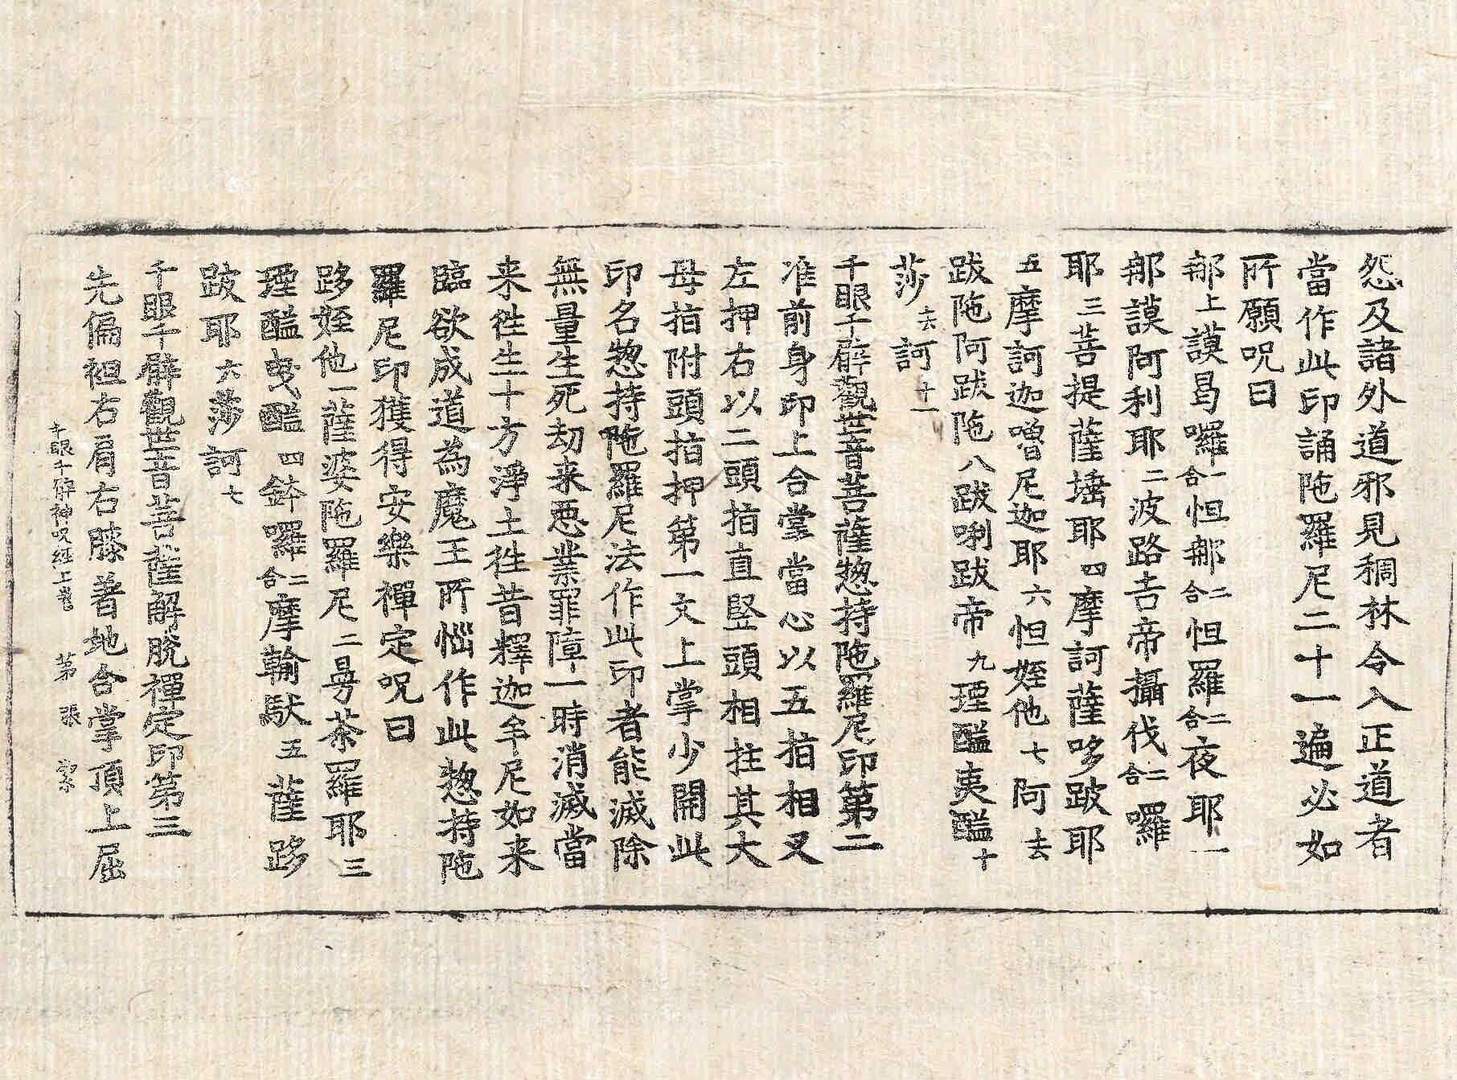 怨及諸外道邪見稠林令入正道者
當作此印誦陁羅尼二十一遍必如
所願呪曰
𨚗上謨曷囉合一怛𨚗合二怛羅合二夜耶一
𨚗謨阿利耶二波路吉帝攝伐合二囉
耶三菩提薩埵耶四摩訶薩哆跛耶
五摩訶迦嚕尼迦耶六怛姪他七阿去
跋陁阿跋陁八跋唎跋帝九堙醯夷醯十
莎去訶十一
千眼千臂觀世音菩薩惣持陁羅尼印第二
准前身印上合掌當心以五指相叉
左押右以二頭指直竪頭相拄其大
母指附頭指押第一文上掌少開此
印名惣持陁羅尼法作此印者能滅除
無量生死劫来惡業罪障一時消滅當
来徃生十方淨土徃昔釋迦牟尼如来
臨欲成道為魔王所惱作此惣持陁
羅尼印獲得安樂禪定呪曰
跢姪他一薩婆陁羅尼二曼茶羅耶三
堙醯曳醯四鉢囉合二摩輸馱五薩跢
跛耶六莎訶七
千眼千臂觀世音菩薩解脫禪定印第三
先偏袒右肩右膝著地合掌頂上屈
千眼千臂神呪經上卷 第 張